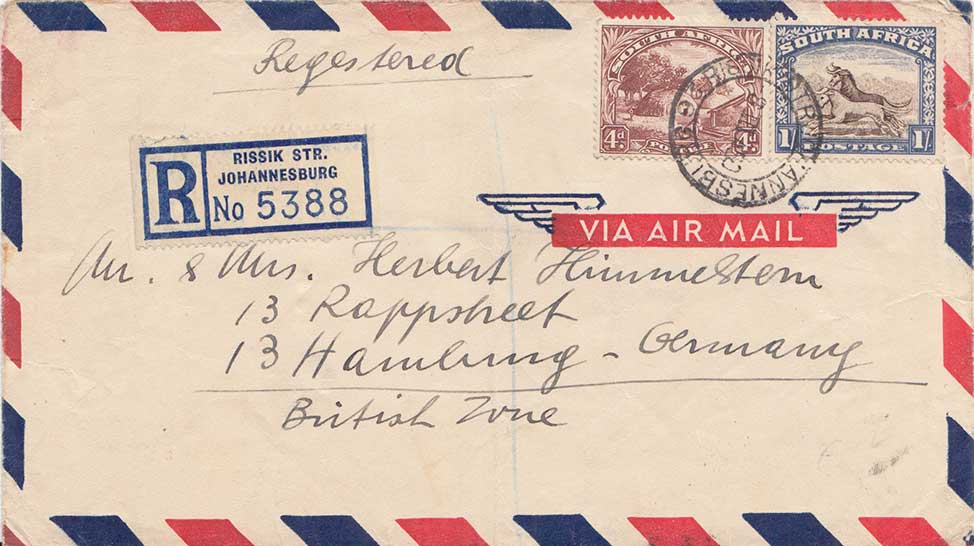 Regestered
SOUTH AFRICA
4d 4d
POSTAGE
SOUTH AFRICA
1/- 1/-
POSTAGE
R
RISSIK STR.
JOHANNESBURG
No 5388
VIA AIR MAIL
Mr. & Mrs. Herbert Himmelstern
13 Rappstreet
13 Hamburg - Germany
British Zone